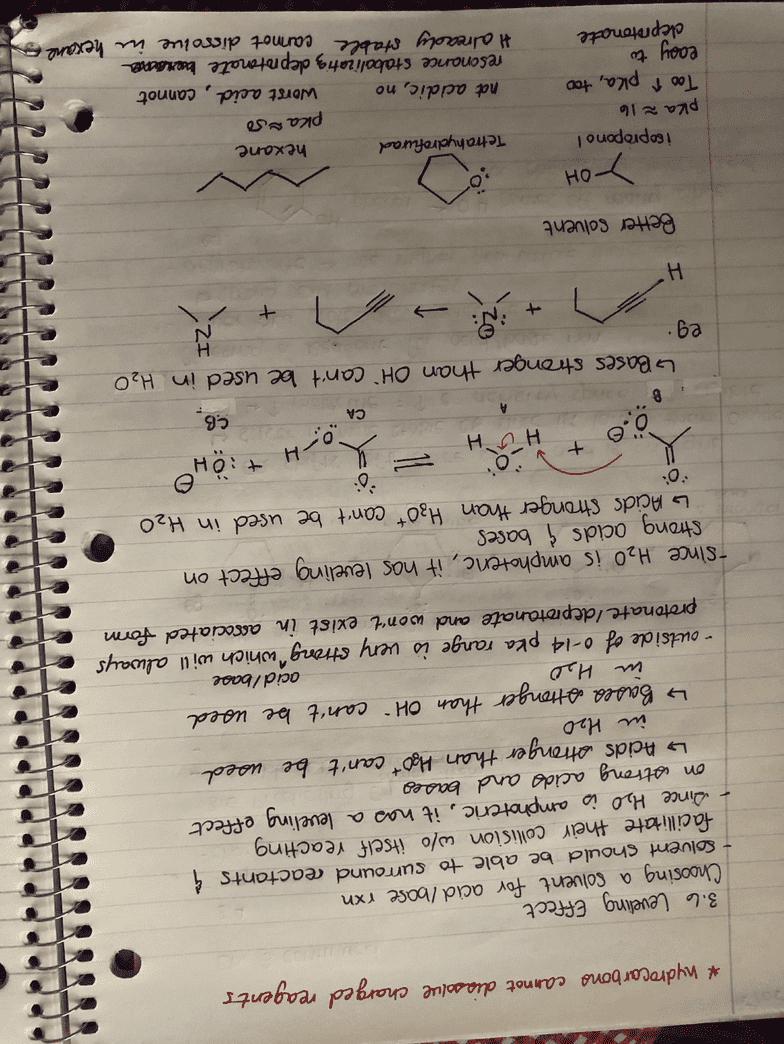 * hydrocarbons cannot dissolve charged reagents
3.6 Leveling Effect
Choosing a solvent for acid/base rxn
- solvent should be able to surround reactants &
facillitate their collision w/o itself reacting
- Since H₂O is amphoteric, it has a leveling effect
on strong acids and bases
↳ Acids stronger than H₃O⁺ can't be used
in H₂O
↳ Bases stronger than OH⁻ can't be used
in H₂O
acid/base
- outside of 0-14 pka range is very strong ^ which will always
protonate/deprotanate and won't exist in associated form
- Since H₂O is amphoteric, it has leveling effect on
strong acids & bases
↳ Acids stronger than H₃O⁺ can't be used in H₂O
:O: :O:
:O: ⊖ + H O H ⇌ O H + :OH ⊖
B A CA C.B.
↳ Bases stronger than OH⁻ can't be used in H₂O
eg.
H + :N: ⊖ → + N H
Better solvent
OH O:
isopropanol Tetrahydrofuran hexane
pka ≈ 16 pka ≈ 50
Too ↑ pka, too not acidic, no worst acid, cannot
easy to resonance stabalizatig deprotonate
deprotonate # already stable cannot dissolve in hexane